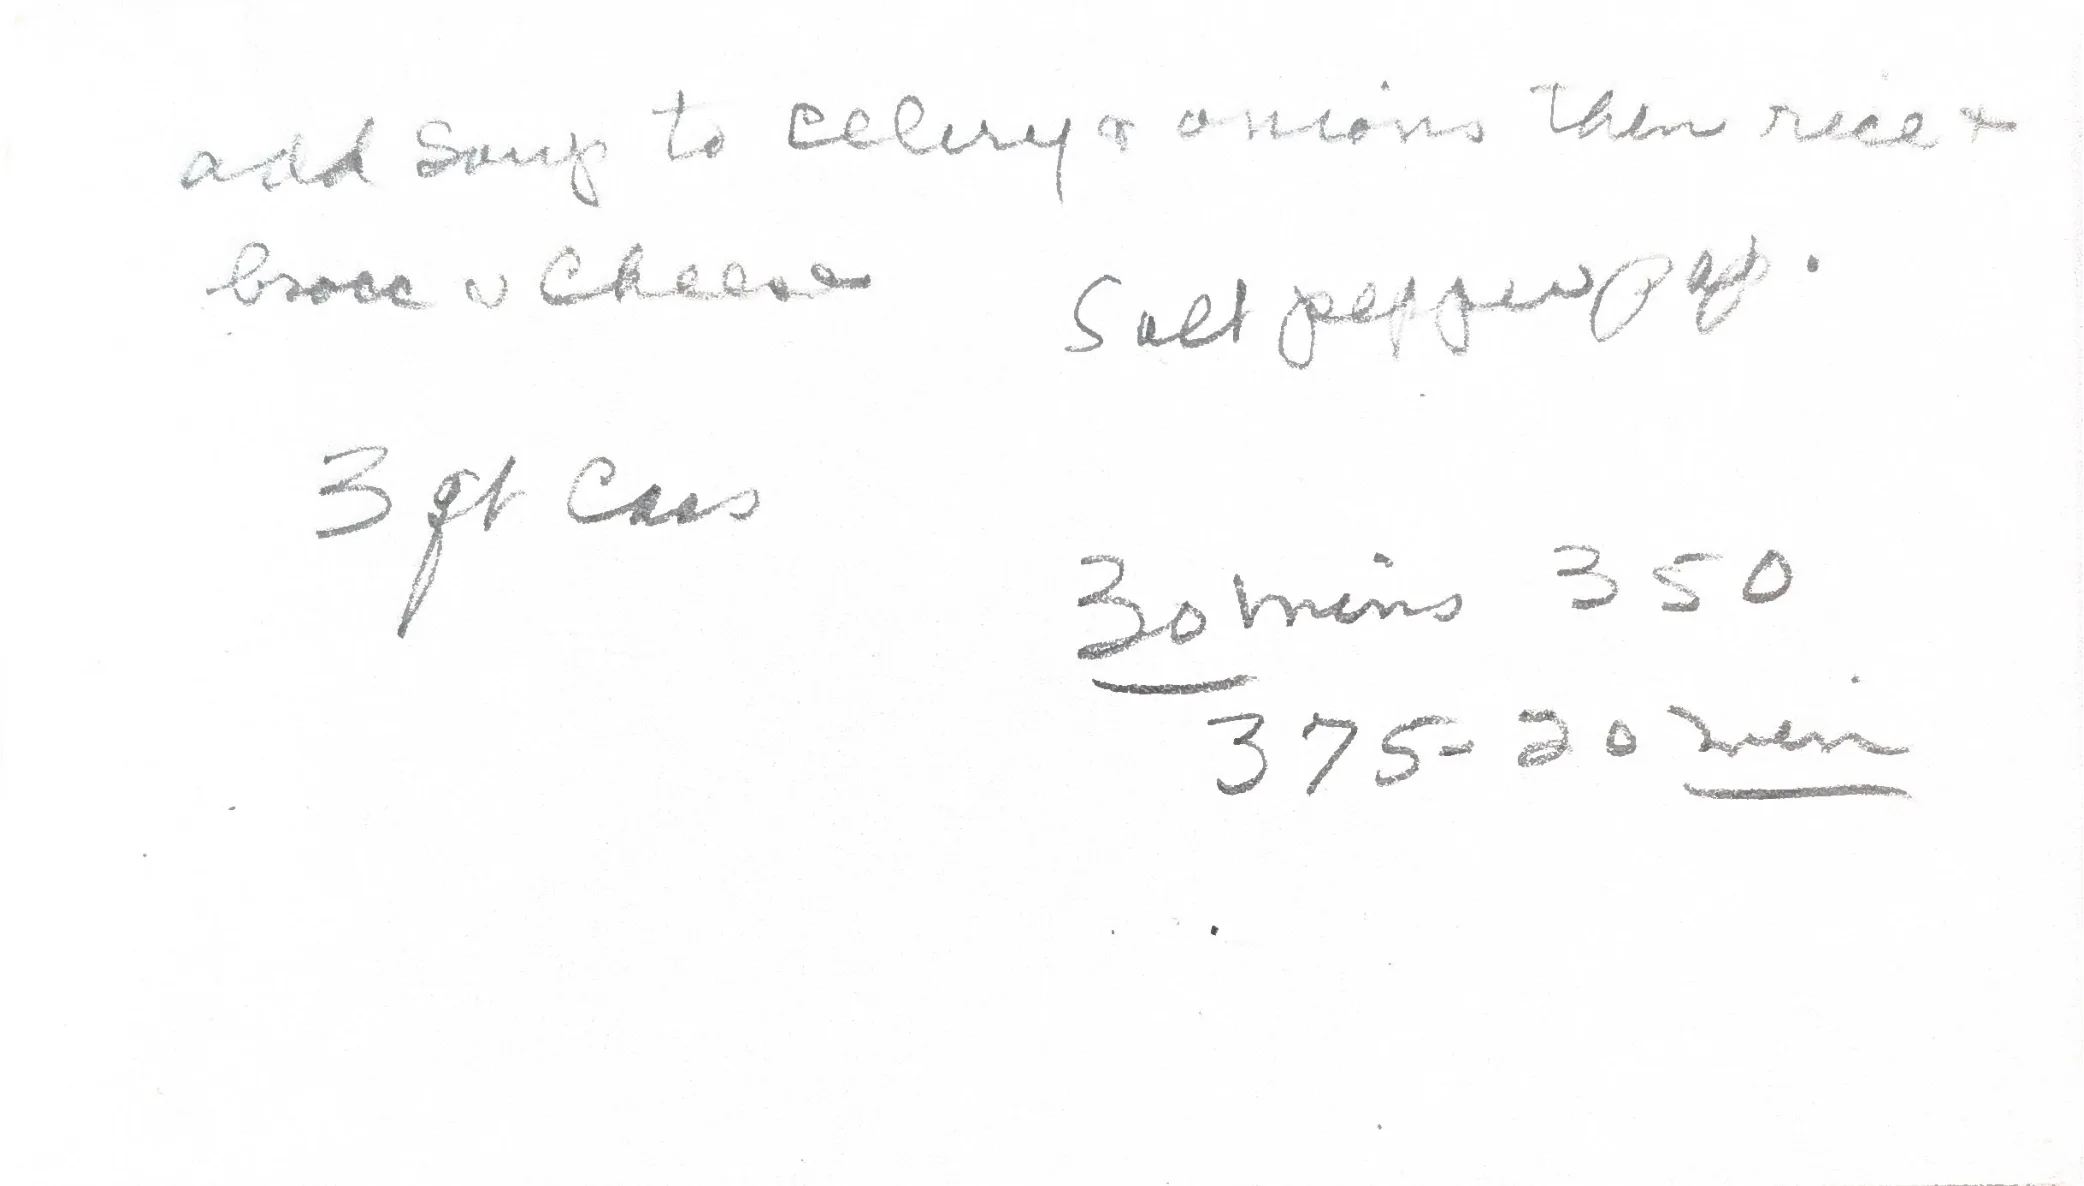 add Soup to celery & onions then rice +
brocc & Cheese Salt pepper pap.
3 qt Cass
30 mins 350
375 - 20 min